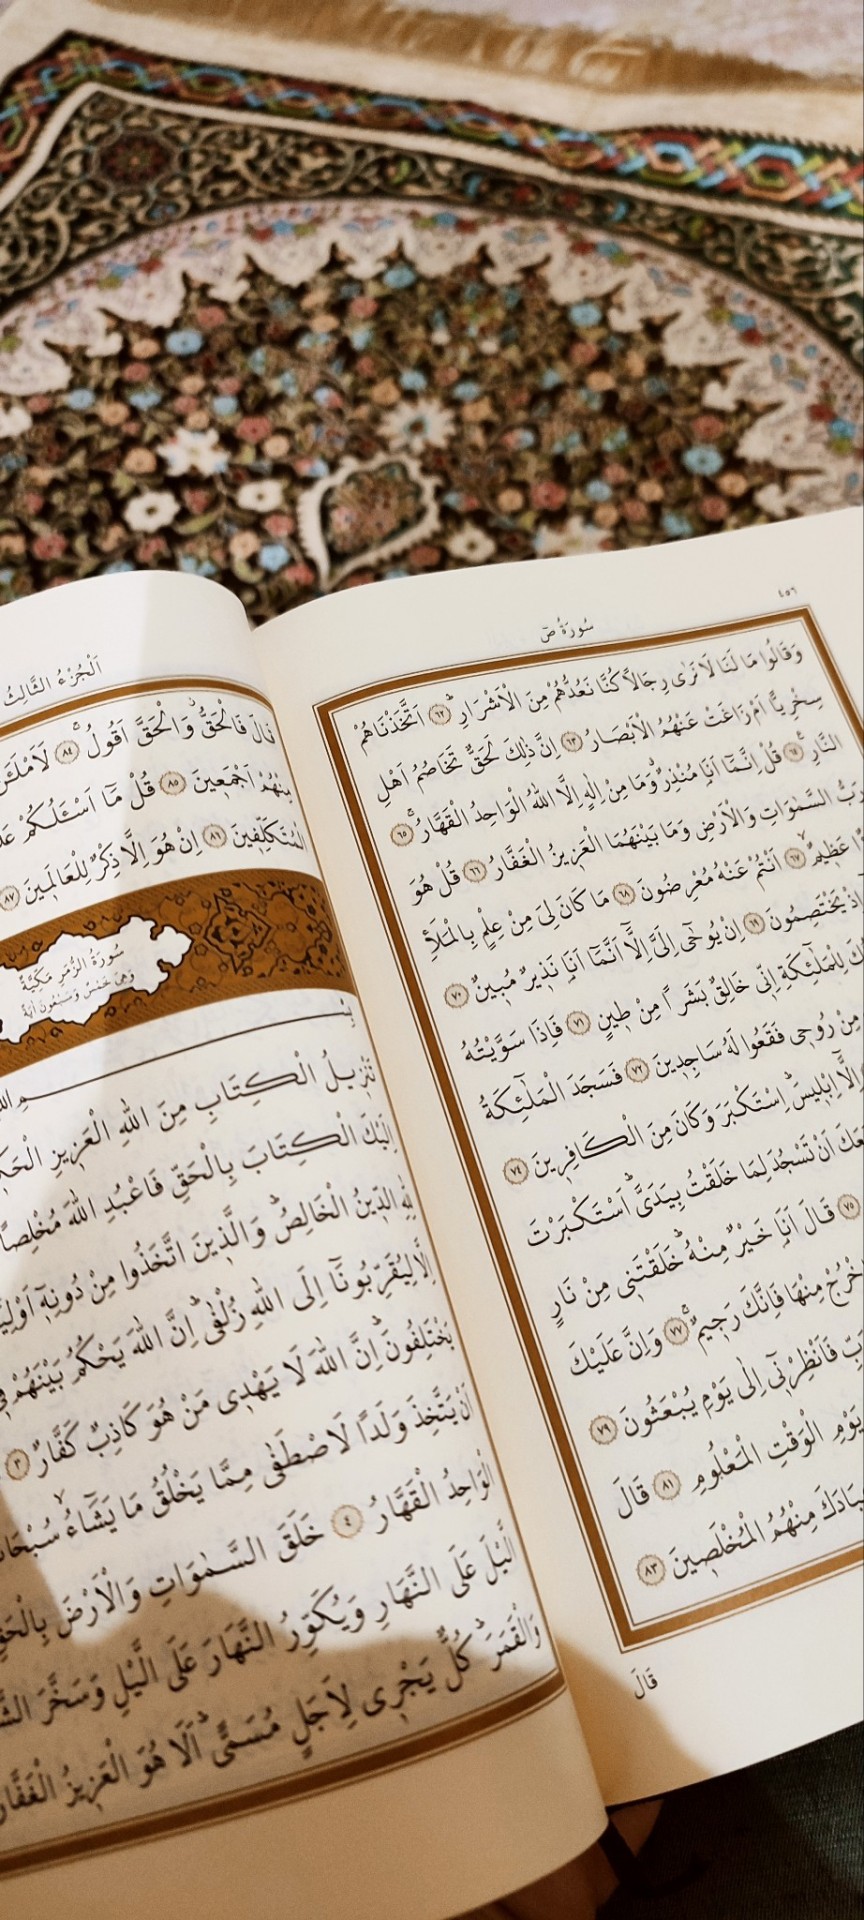 ٤٥٦
سُورَةُ صٓ
وَقَالُوا مَا لَنَا لَا نَرٰى رِجَالًا كُنَّا نَعُدُّهُمْ مِنَ الْاَشْرَارِۜ ﴿٦٢﴾ اَتَّخَذْنَاهُمْ
سِخْرِيًّا اَمْ زَاغَتْ عَنْهُمُ الْاَبْصَارُ ﴿٦٣﴾ اِنَّ ذٰلِكَ لَحَقٌّ تَخَاصُمُ اَهْلِ
النَّارِ۟ ﴿٦٤﴾ قُلْ اِنَّمَٓا اَنَا۬ مُنْذِرٌۗ وَمَا مِنْ اِلٰهٍ اِلَّا اللّٰهُ الْوَاحِدُ الْقَهَّارُۚ ﴿٦٥﴾
رَبُّ السَّمٰوَاتِ وَالْاَرْضِ وَمَا بَيْنَهُمَا الْعَزِيزُ الْغَفَّارُ ﴿٦٦﴾ قُلْ هُوَ
عَظِيمٌۙ ﴿٦٧﴾ اَنْتُمْ عَنْهُ مُعْرِضُونَ ﴿٦٨﴾ مَا كَانَ لِيَ مِنْ عِلْمٍ بِالْمَلَأِ
اِذْ يَخْتَصِمُونَ ﴿٦٩﴾ اِنْ يُوحٰٓى اِلَيَّ اِلَّٓا اَنَّمَٓا اَنَا۬ نَذِيرٌ مُبِينٌ ﴿٧٠﴾
لِلْمَلٰٓئِكَةِ اِنِّي خَالِقٌ بَشَرًا مِنْ طِينٍ ﴿٧١﴾ فَاِذَا سَوَّيْتُهُ
مِنْ رُوحِي فَقَعُوا لَهُ سَاجِدِينَ ﴿٧٢﴾ فَسَجَدَ الْمَلٰٓئِكَةُ
اِلَّٓا اِبْلِيسَۜ اِسْتَكْبَرَ وَكَانَ مِنَ الْكَافِرِينَ ﴿٧٤﴾
اَنْ تَسْجُدَ لِمَا خَلَقْتُ بِيَدَيَّۜ اَسْتَكْبَرْتَ
﴿٧٥﴾ قَالَ اَنَا۬ خَيْرٌ مِنْهُۜ خَلَقْتَنِي مِنْ نَارٍ
مِنْهَا فَاِنَّكَ رَجِيمٌۚ ﴿٧٧﴾ وَاِنَّ عَلَيْكَ
فَاَنْظِرْنِٓي اِلٰى يَوْمِ يُبْعَثُونَ ﴿٧٩﴾
يَوْمِ الْوَقْتِ الْمَعْلُومِ ﴿٨١﴾ قَالَ
عِبَادَكَ مِنْهُمُ الْمُخْلَصِينَ ﴿٨٣﴾
قَالَ
اَلْجُزْءُ الثَّالِثُ
قَالَ فَالْحَقُّۘ وَالْحَقَّ اَقُولُۚ ﴿٨٤﴾
مِنْهُمْ اَجْمَعِينَ ﴿٨٥﴾ قُلْ مَٓا اَسْـَٔلُكُمْ
الْمُتَكَلِّفِينَ ﴿٨٦﴾ اِنْ هُوَ اِلَّا ذِكْرٌ لِلْعَالَمِينَ ﴿٨٧﴾
سُورَةُ الزُّمَرِ مَكِّيَّةٌ
وَهِيَ خَمْسٌ وَسَبْعُونَ اٰيَةً
تَنْزِيلُ الْكِتَابِ مِنَ اللّٰهِ الْعَزِيزِ
اِلَيْكَ الْكِتَابَ بِالْحَقِّ فَاعْبُدِ اللّٰهَ مُخْلِصًا
لِلّٰهِ الدِّينُ الْخَالِصُۜ وَالَّذِينَ اتَّخَذُوا مِنْ دُونِهِٓ
اِلَّا لِيُقَرِّبُونَٓا اِلَى اللّٰهِ زُلْفٰىۜ اِنَّ اللّٰهَ يَحْكُمُ بَيْنَهُمْ
يَخْتَلِفُونَۜ اِنَّ اللّٰهَ لَا يَهْدِي مَنْ هُوَ كَاذِبٌ كَفَّارٌ ﴿٣﴾
اَنْ يَتَّخِذَ وَلَدًا لَاصْطَفٰى مِمَّا يَخْلُقُ مَا يَشَٓاءُۙ
الْوَاحِدُ الْقَهَّارُ ﴿٤﴾ خَلَقَ السَّمٰوَاتِ وَالْاَرْضَ بِالْحَقِّ
الَّيْلَ عَلَى النَّهَارِ وَيُكَوِّرُ النَّهَارَ عَلَى الَّيْلِ وَسَخَّرَ
وَالْقَمَرَۜ كُلٌّ يَجْرِي لِاَجَلٍ مُسَمًّىۜ اَلَا هُوَ الْعَزِيزُ الْغَفَّارُ